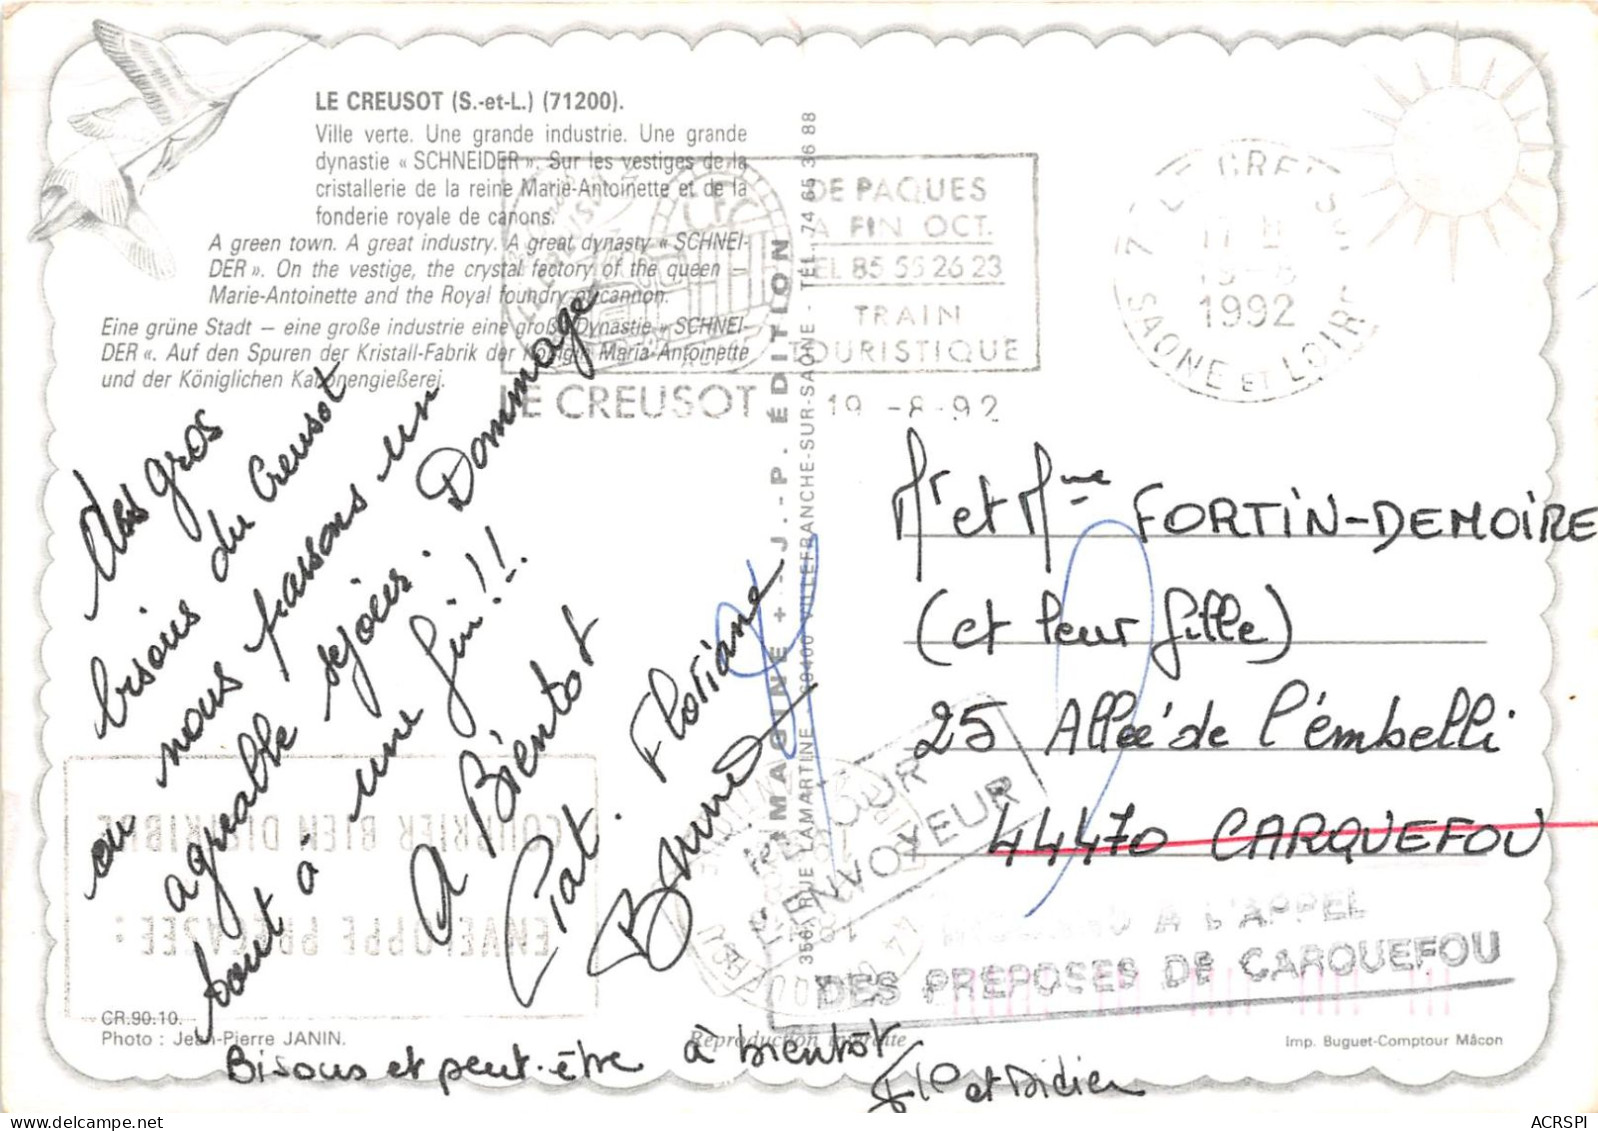 LE CREUSOT (S.-et-L.) (71200).
Ville verte. Une grande industrie. Une grande
dynastie « SCHNEIDER ». Sur les vestiges de la
cristallerie de la reine Marie-Antoinette et de la
fonderie royale de canons.
A green town. A great industry. A great dynasty « SCHNEI-
DER ». On the vestige, the crystal factory of the queen –
Marie-Antoinette and the Royal foundry of cannon.
Eine grüne Stadt – eine große industrie eine große Dynastie « SCHNEI-
DER «. Auf den Spuren der Kristall-Fabrik der Königin Maria-Antoinette
und der Königlichen Kanonengießerei.
DE PAQUES
A FIN OCT.
TEL 85 55 26 23
TRAIN
TOURISTIQUE
LE CREUSOT
19 -8-92
1992
SAONE ET LOIRE
des gros
bisous du Creusot
ou nous passons un
agréable séjour. Dommage
tout à une fin!!
A Bientot
Pat. Floriane
Bruno
Bisous et peut-être à bientôt
et Didier
IMAGINE + - J.-P. ÉDITION
356, RUE LAMARTINE - 69400 VILLEFRANCHE-SUR-SAÔNE - TÉL. 74 65 36 88
Mr et Mme FORTIN-DEMOIRE
(et leur fille)
25 Allée de l'embelli
44470 CARQUEFOU
RETOUR
A L'ENVOYEUR
A L'APPEL
DES PREPOSES DE CARQUEFOU
COURRIER BIEN DISTRIBUE
ENVELOPPE PREPAYEE :
CR.90.10.
Photo : Jean-Pierre JANIN.
Reproduction interdite
Imp. Buguet-Comptour Mâcon
ACRSPI